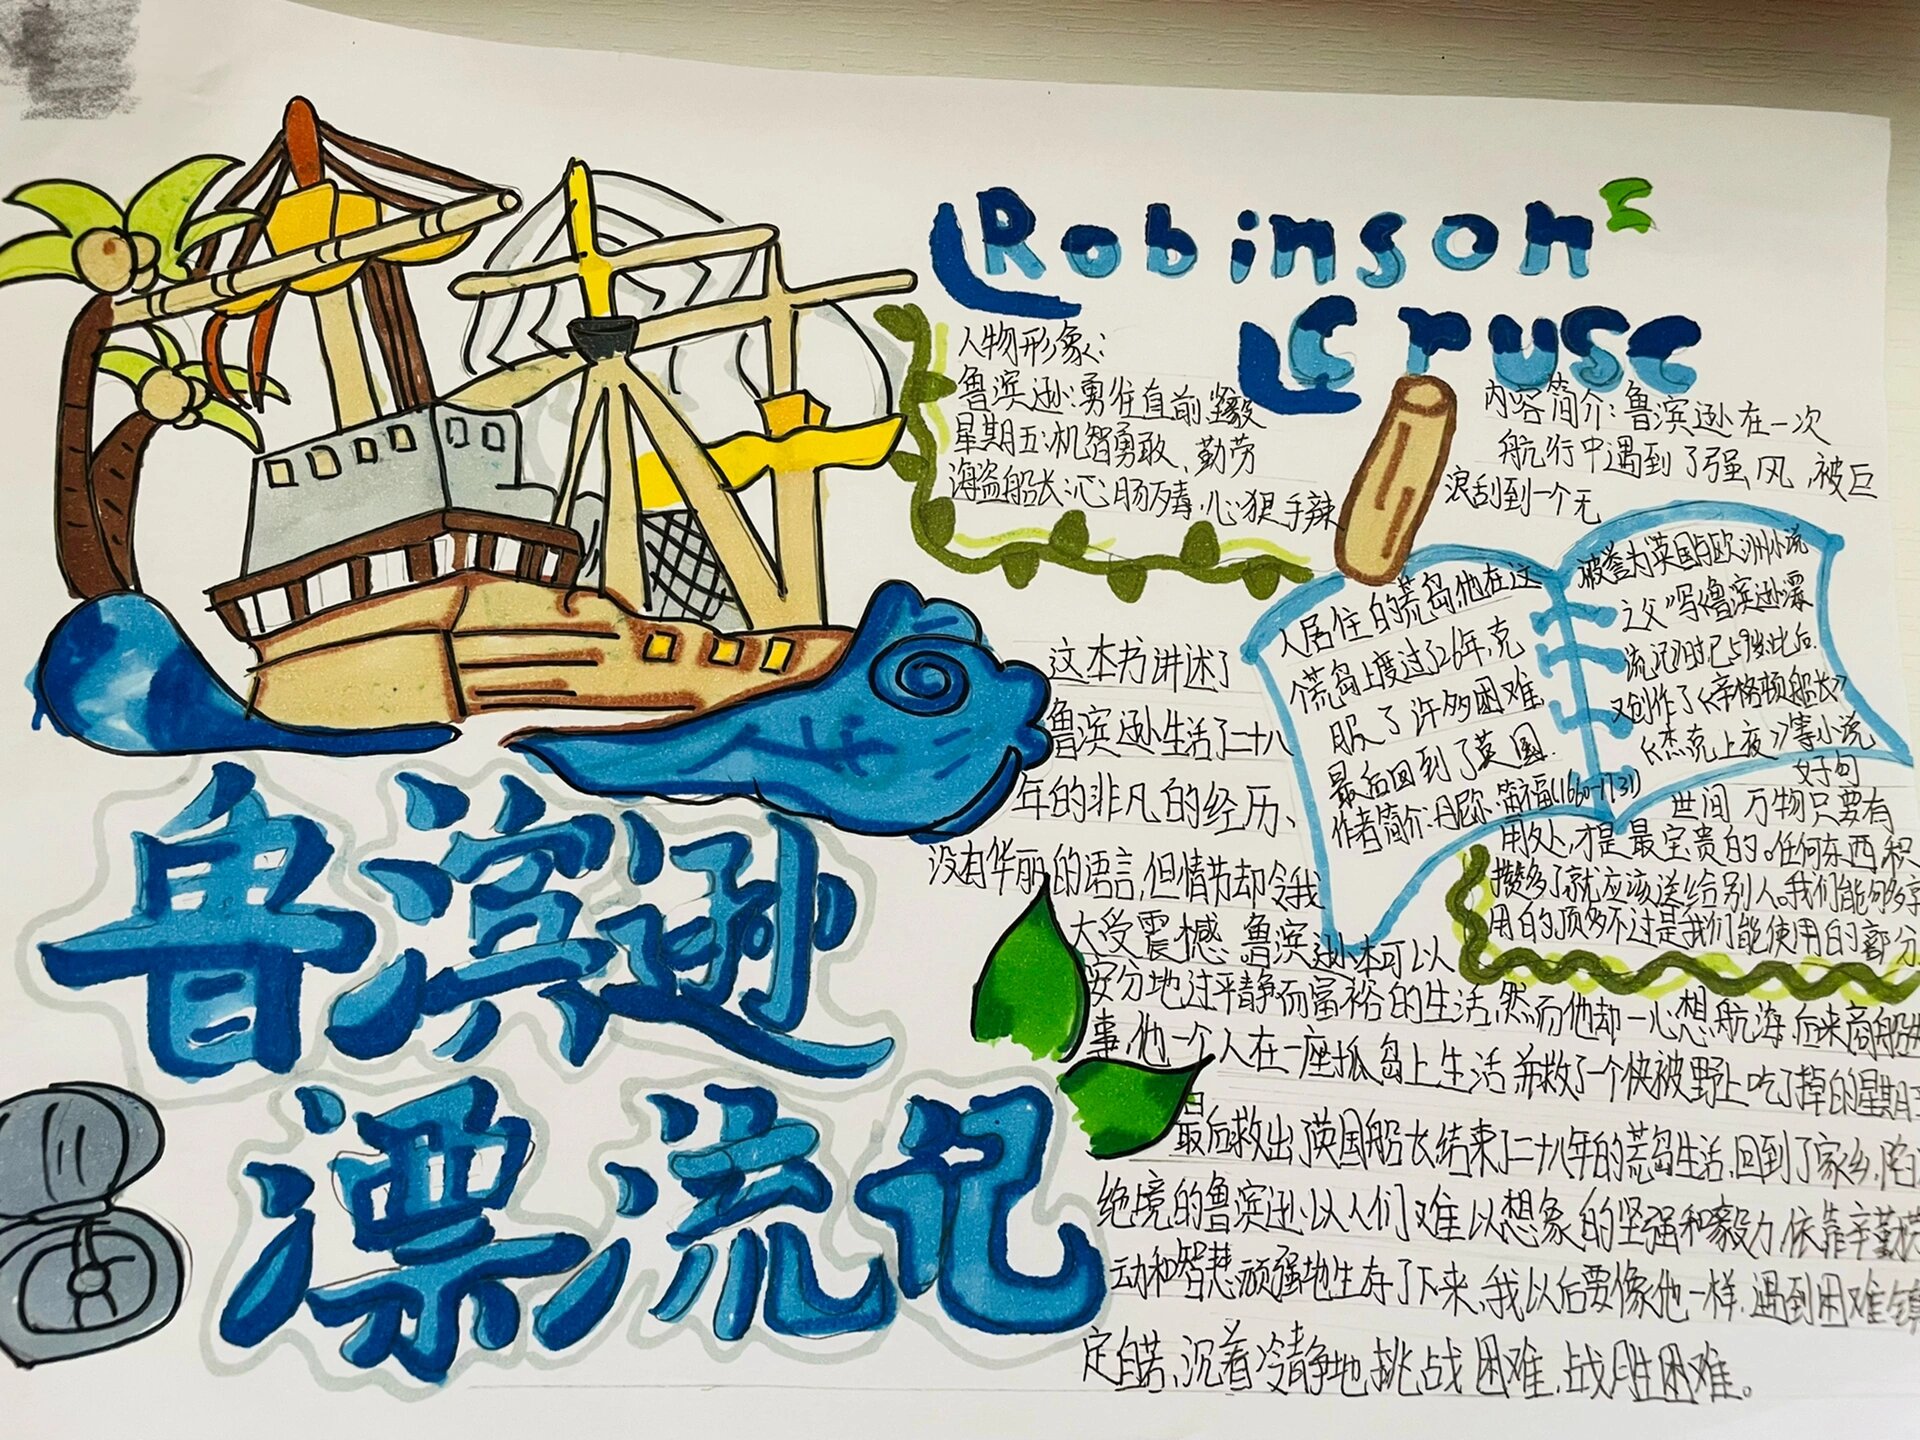 Robinson
Cruse
人物形象:
鲁滨逊:勇往直前坚毅
星期五:机智勇敢、勤劳
海盗船长:心肠历毒,心狠手辣
内容简介:鲁滨逊在一次
航行中遇到了强风,被巨
浪刮到一个无
人居住的荒岛他在这
个荒岛上度过了26年,克
服了许多困难
最后回到了英国.
作者简介:丹尼尔·笛福(1660-1731)
被誉为英国与欧洲小说
之父》写《鲁滨逊漂
流记》时已59岁,此后.
又创作了《辛格顿船长》
《杰克上夜》等小说
好句
世间万物只要有
用处,才是最宝贵的。任何东西积
攒多了就应该送给别人。我们能够多享
用的,顶多不过是我们能使用的部分
这本书讲述了
鲁滨逊生活了二十八
年的非凡的经历、
没有华丽的语言,但情节却令我
大受震憾.鲁滨逊本可以
安分地过平静而富裕的生活,然而他却一心想航海,后来商船
事,他一个人在一座孤岛上生活并救了一个快被野上吃了掉的星期
最后救出了英国船长结束了二十八年的荒岛生活,回到了家乡,陷
绝境的鲁滨逊,以人们难以想象的坚强和毅力,依靠辛勤
动和智慧顽强地生存了下来,我以后要像他一样,遇到困难
定自若,沉着冷静地挑战困难,战胜困难。
鲁滨逊
漂流记